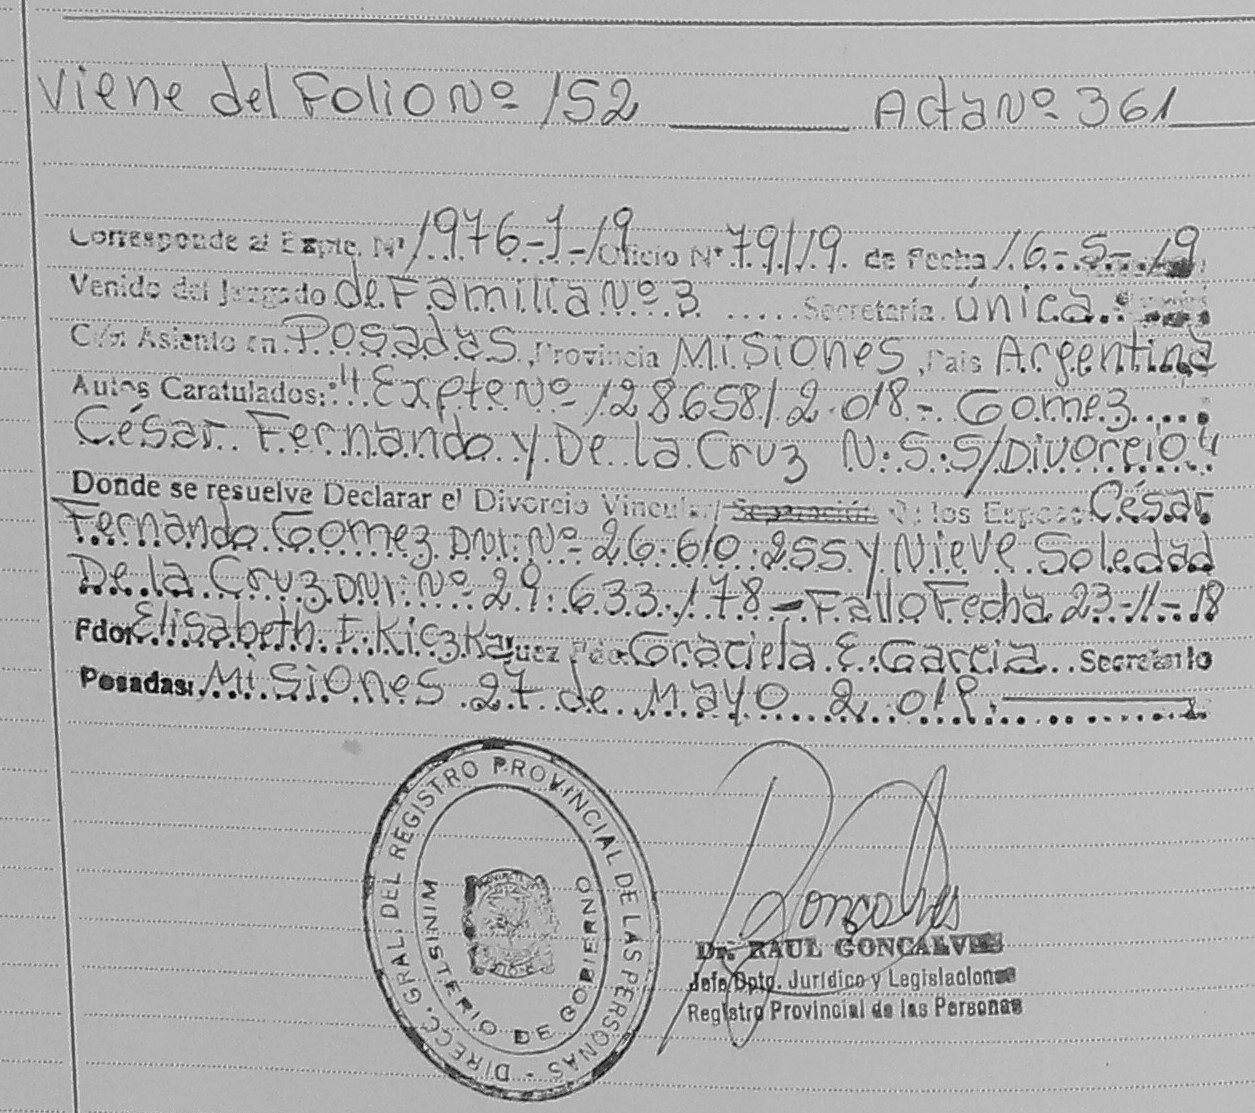 Viene del Folio Nº 152 Acta Nº 361
Corresponde al Expte. Nº 1976-J-19 Oficio Nº 79/19 de Fecha 16-5-19
Venido del Juzgado de Familia Nº 3 Secretaría única
C/ Asiento en Posadas, Provincia Misiones, País Argentina
Autos Caratulados: "Expte Nº 128658/2.018- Gomez
César Fernando y De la Cruz N.S. S/Divorcio"
Donde se resuelve Declarar el Divorcio Vincular/ Separación De los Esposos César
Fernando Gomez DNI: Nº 26.610.255 y Nieve Soledad
De la Cruz DNI: Nº 29.633.178 - Fallo Fecha 23-11-18
Fdo: Elisabeth I. Kiczka Juez Fdo. Graciela E. Garcia Secretario
Posadas: Misiones 27 de Mayo 2.019.
DIRECC. GRAL. DEL REGISTRO PROVINCIAL DE LAS PERSONAS -
MINISTERIO DE GOBIERNO
Goncalves
Dr. RAUL GONCALVES
Jefe Dpto. Jurídico y Legislaciones
Registro Provincial de las Personas